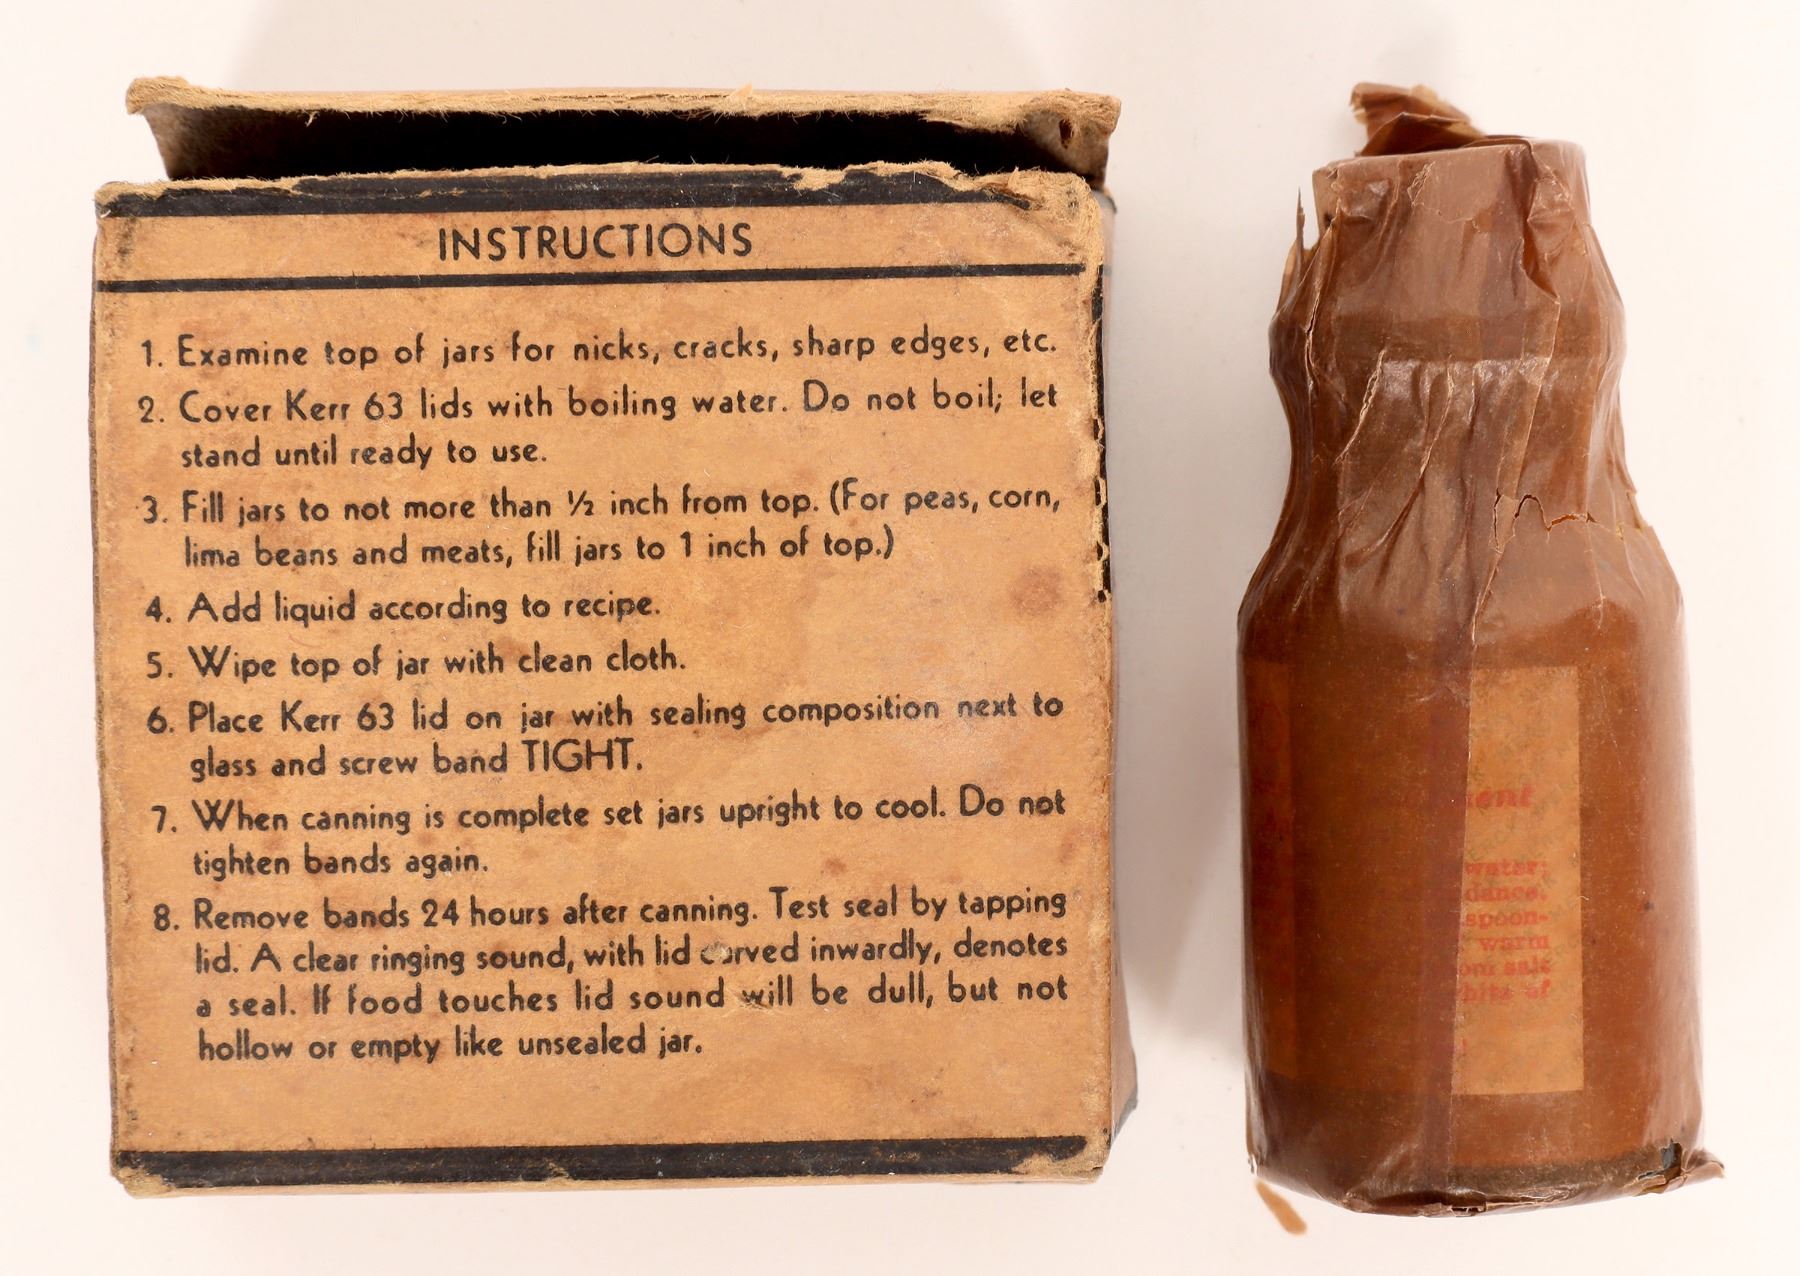 INSTRUCTIONS
1. Examine top of jars for nicks, cracks, sharp edges, etc.
2. Cover Kerr 63 lids with boiling water. Do not boil; let
stand until ready to use.
3. Fill jars to not more than ½ inch from top. (For peas, corn,
lima beans and meats, fill jars to 1 inch of top.)
4. Add liquid according to recipe.
5. Wipe top of jar with clean cloth.
6. Place Kerr 63 lid on jar with sealing composition next to
glass and screw band TIGHT.
7. When canning is complete set jars upright to cool. Do not
tighten bands again.
8. Remove bands 24 hours after canning. Test seal by tapping
lid. A clear ringing sound, with lid curved inwardly, denotes
a seal. If food touches lid sound will be dull, but not
hollow or empty like unsealed jar.
water;
dance.
spoon-
warm
om salt
of